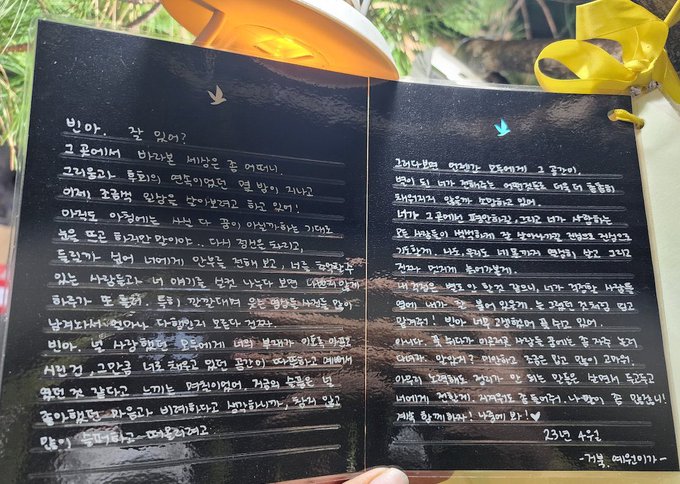 빈아. 잘 있어?
그 곳에서 바라본 세상은 좀 어떠니.
그리움과 후회의 연속이었던 열 밤이 지나고
이제, 조금씩 일상을 살아보려고 하고 있어!
아직도 아침에는 사실 다 꿈이 아닐까하는 기대로
눈을 뜨곤 하지만 말이야.. 다시 정신을 차리고,
들릴까 싶어 너에게 안부를 전해 보고, 너를
있는 사람들과 너 얘기를 실컷 나누다 보면 나름 괜찮게
하루가 또 흘러. 특히 깔깔대며 웃는 영상들, 사진들 많이
남겨놔서 얼마나 다행인지 모른다 진짜.
빈아. 널 사랑했던 모두에게 너의 부재가 이토록 아프고
시린 건, 그만큼 너로 채우고 있던 공간이 따뜻하고 예뻐서
였던 것 같다고 느끼는 며칠이었어. 지금의 슬픔은 널
좋아했던 마음과 비례하다고 생각하니까, 참지 않고
많이 슬퍼하고 떠올리려고.
그러다보면 언젠가 모두에게 그 공간이,
별이 된 너가 전해주는 어떤것들로 더욱 더 튼튼히
채워지지 않을까 생각하고 있어.
너가 그곳에서 평안하길, 그리고 너가 사랑하는
모든 사람들이 행복하게 잘 살아나가길 진심으로 진심으로
기도할게. 나도, 우리도 네 몫까지 열심히 살고 그리고
진짜 먼저게 놀러가볼게.
내 걱정은 별로 안 할 것 같으니, 너가 걱정한 사람들
옆에 너가 꼭 붙어 있을게 늘 그랬던 것처럼 믿고
맡겨줘! 빈아 너무 고생했었어 푹 쉬고 있어.
아니다. 푹 쉬다가 이곳저곳 사람들 꿈에는 좀 자주 놀러
다녀라. 알았지? 미안하고 조금은 밉고 많이 고마워.
아무리 노력해도 정리가 안 되는 말들은 살면서 두고두고
너에게 전할게. 지겨워도 좀 들어주라. 나 말이 좀 많잖니!
계속 함께하자! 나중에 봐!♡
23년 4월
-거북. 예원이가-